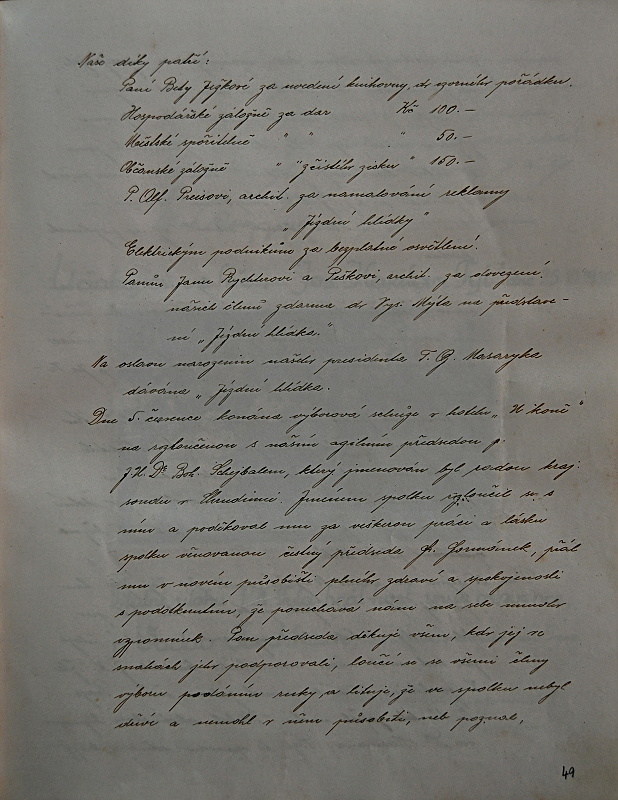 Naše díky patří:
Paní Bety Jiškové za uvedení knihovny do vzorného pořádku.
Hospodářské záložně za dar Kč 100.—
Městské spořitelně " " " 50.—
Občanské záložně " "z čistého zisku" 150.—
P. Olf. Preisovi, archit. za namalování reklamy
„Jízdní hlídky"
Elektrickým podnikům za bezplatné osvětlení.
Pánům Janu Rychterovi a Peškovi, archit. za dovezení
našich členů zdarma do Vys. Mýta na představe-
ní „Jízdní hlídka."
Na oslavu narozenin našeho presidenta T. G. Masaryka
dávána „Jízdní hlídka.
Dne 5. července konána výborová schůze v hotelu „U koně"
na rozloučenou s naším agilním předsedou p.
JU. Dr Boh. Schejbalem, který jmenován byl radou kraj.
soudu v Chrudimi. Jmenem spolku rozloučil se s
ním a poděkoval mu za veškerou práci a lásku
spolku věnovanou čestný předseda Heřmánek, přál
mu v novém působišti plného zdraví a spokojenosti
s podotknutím, že ponechává nám na sebe mnoho
vzpomínek. Pan předseda děkuje všem, kdo jej ve
snahách jeho podporovali, loučí se se všemi členy
výboru podáním ruky a lituje, že ve spolku nebyl
dříve a nemohl v něm působiti, neb poznal,
49